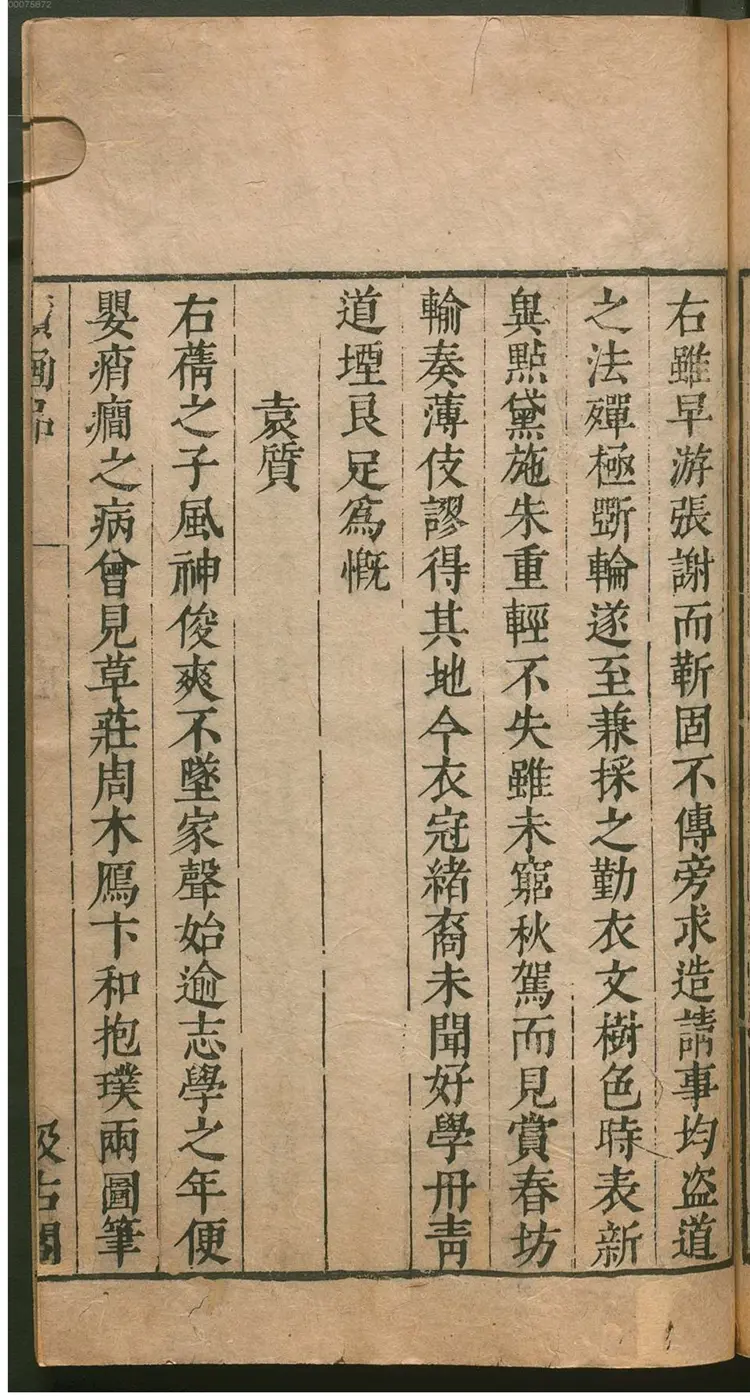 右雖早游張謝而靳固不傳旁求造請事均盜道
之法殫極斲輪遂至兼採之勤衣文樹色時表新
異點黛施朱重輕不失雖未窮秋駕而見賞春坊
輸奏薄伎謬得其地今衣冠緒裔未聞好學丹青
道堙良足爲慨
袁質
右蒨之子風神俊爽不墜家聲始逾志學之年便
嬰痟癎之病曾見草莊周木鴈卞和抱璞兩圖筆
畫品
汲古閣
00075872